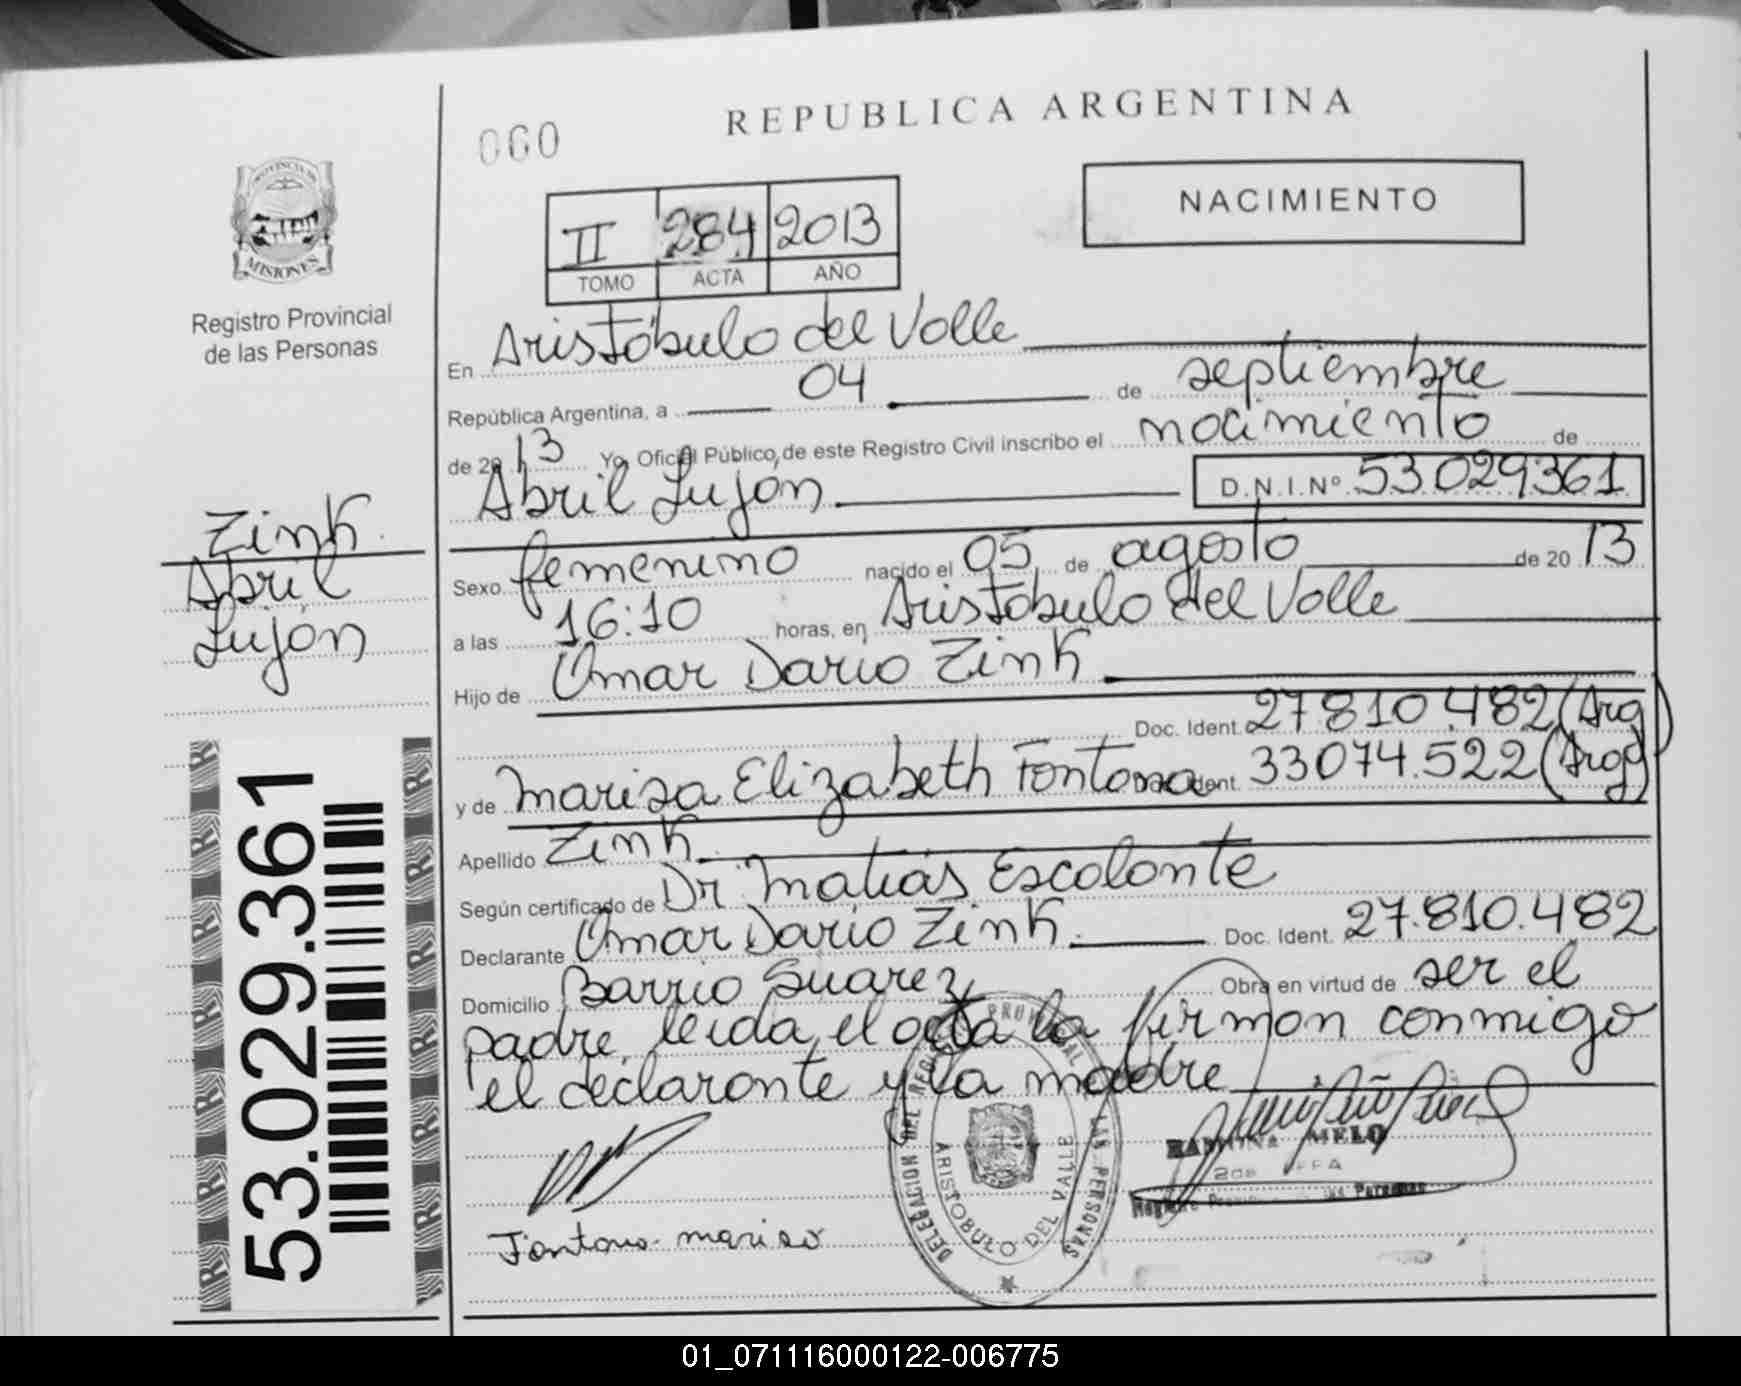 REPUBLICA ARGENTINA
060
NACIMIENTO
II 284 2013
TOMO ACTA AÑO
PROVINCIA DE
MISIONES
Registro Provincial
de las Personas
En Aristóbulo del Valle
República Argentina, a 04 de septiembre
de 2013 Yo, Oficial Público, de este Registro Civil inscribo el nacimiento de
Abril Luján D.N.I.Nº 53.029.361
Zink
Abril
Luján
Sexo femenino nacido el 05 de agosto de 2013
a las 16:10 horas, en Aristóbulo del Valle
Hijo de Omar Dario Zink
Doc. Ident. 27.810.482 (Arg)
y de Marisa Elizabeth Fontana Doc. Ident. 33.074.522 (Arg)
Apellido Zink
Según certificado de Dr. Matias Escalante
Declarante Omar Dario Zink Doc. Ident. 27.810.482
Domicilio Barrio Suarez Obra en virtud de ser el
padre, leida el acta la firman conmigo
el declarante y la madre
53.029.361
DELEGACION DEL REGISTRO PROVINCIAL DE LAS PERSONAS
ARISTOBULO DEL VALLE
MELO
Fontana Marisa
01_071116000122-006775